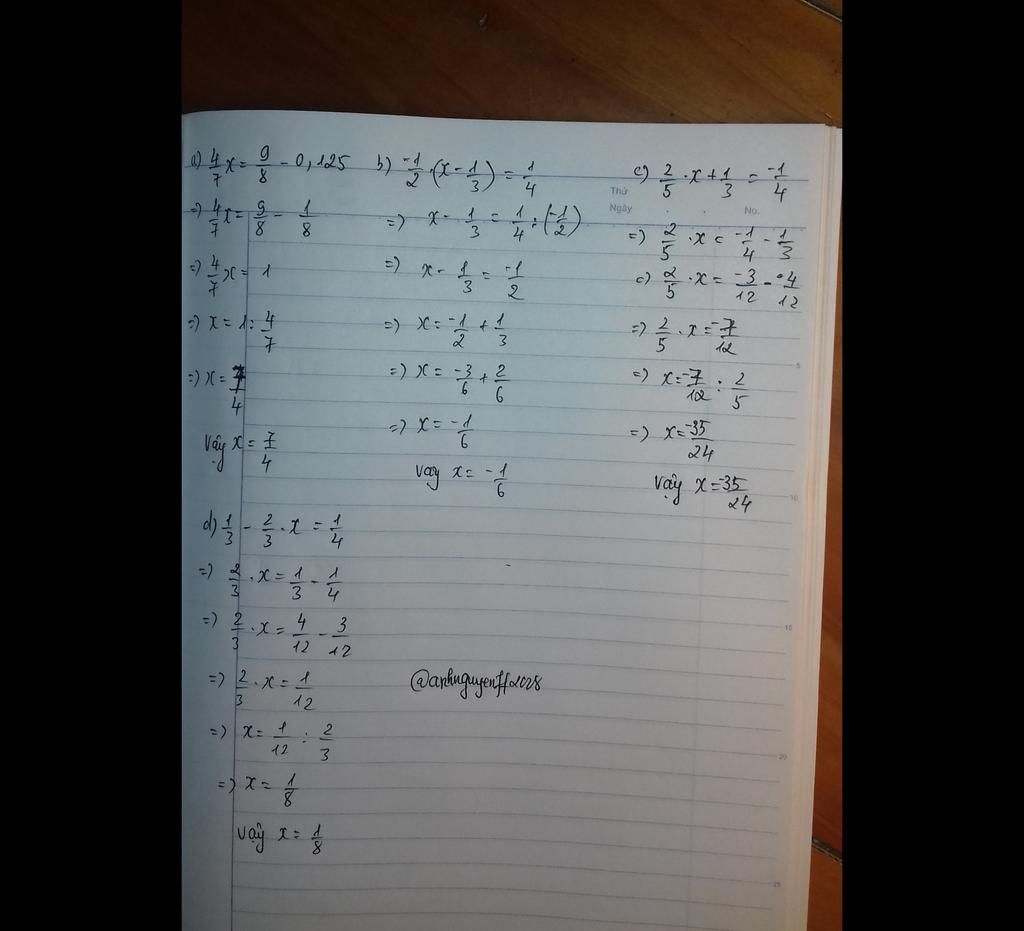 a) 4/7 x = 9/8 - 0,125
=) 4/7 x = 9/8 - 1/8
=) 4/7 x = 1
=) x = 1 : 4/7
=) x = 7/4
Vậy x = 7/4
b) -1/2 . (x - 1/3) = 1/4
=) x - 1/3 = 1/4 : (-1/2)
=) x - 1/3 = -1/2
=) x = -1/2 + 1/3
=) x = -3/6 + 2/6
=) x = -1/6
Vậy x = -1/6
c) 2/5 . x + 1/3 = -1/4
=) 2/5 . x = -1/4 - 1/3
=) 2/5 . x = -3/12 - 4/12
=) 2/5 . x = -7/12
=) x = -7/12 : 2/5
=) x = -35/24
Vậy x = -35/24
Thứ
Ngày . . No.
d) 1/3 - 2/3 . x = 1/4
=) 2/3 . x = 1/3 - 1/4
=) 2/3 . x = 4/12 - 3/12
=) 2/3 . x = 1/12
=) x = 1/12 : 2/3
=) x = 1/8
Vậy x = 1/8
5
10
15
20
25